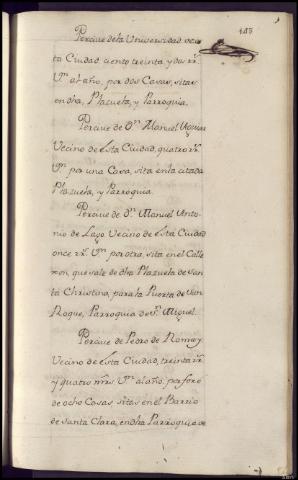 183
Percive dela Universidad de es
ta Ciudad ciento treinta y dos rr.^s
V.^n al año, por dos Casas, sitas
en dha, Plazuela, y Parroquia.
Percive de D.^n Manuel
Vecino de esta Ciudad, quatro rr.^s
V.^n por una Casa, sita enla citada
Plazuela, y Parroquia.
Percive de d.^n Manuel Anto-
nio de Lago Vecino de esta Ciudad
once rr.^s V.^n por otra, sita en el Calle-
xon, que sale de dha Plazuela de San-
ta Christina, para la Puerta de San
Roque, Parroquia de S.^n Miguel.
Percive de Pedro de Romay
Vecino de esta Ciudad, treinta rr.^s
y quatro mrs V.^n al año, por foro
de ocho Casas sitas en el Barrio
de Santa Clara, en dha Parroquia de